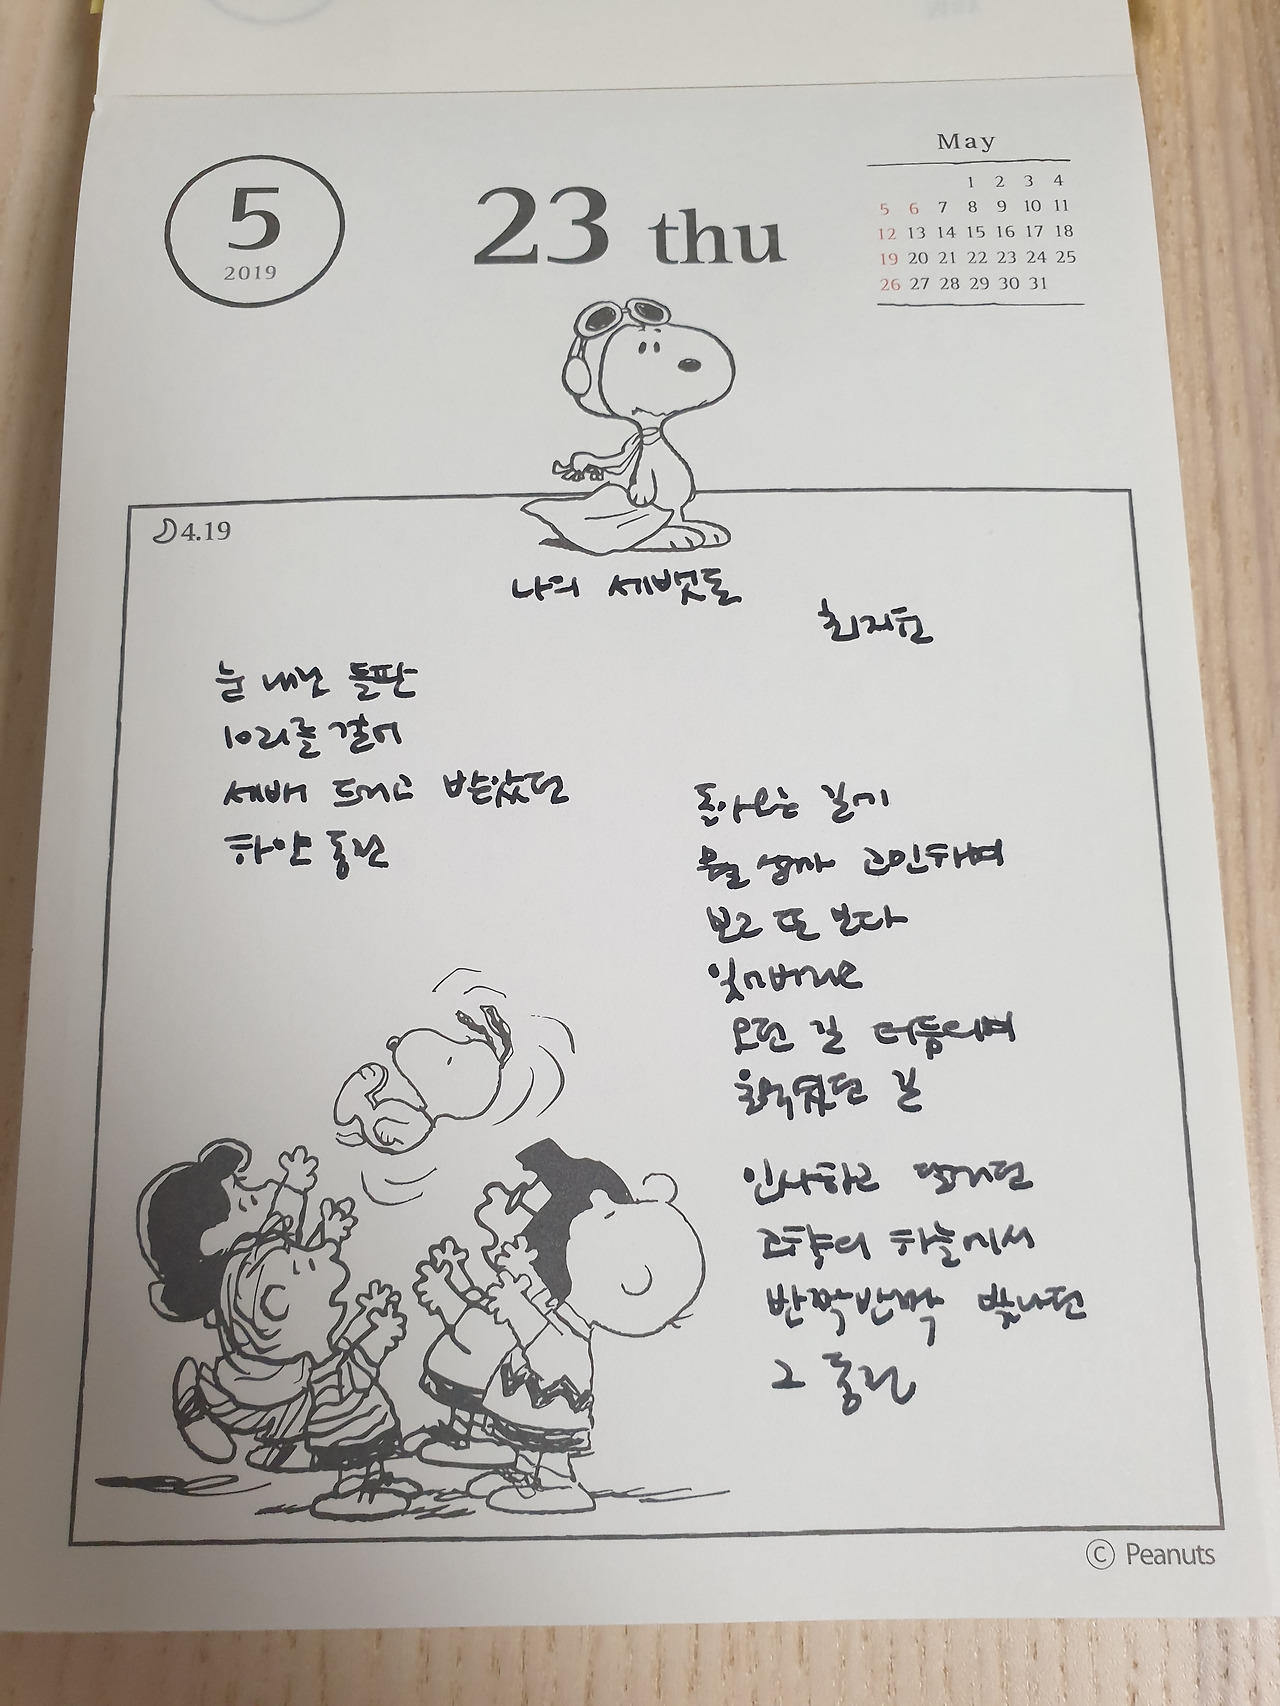 5
2019
23 thu
May
1 2 3 4
5 6 7 8 9 10 11
12 13 14 15 16 17 18
19 20 21 22 23 24 25
26 27 28 29 30 31
4.19
나의 세뱃돈
최지원
눈 내린 들판
10리를 걸어
세배 드리고 받았던
하얀 동전
돌아오는 길에
무얼 살까 고민하며
보고 또 보다
잃어버리고
오던 길 더듬으며
울먹였던 길
인사하고 달리던
고향의 하늘에서
반짝반짝 빛나던
그 동전
© Peanuts